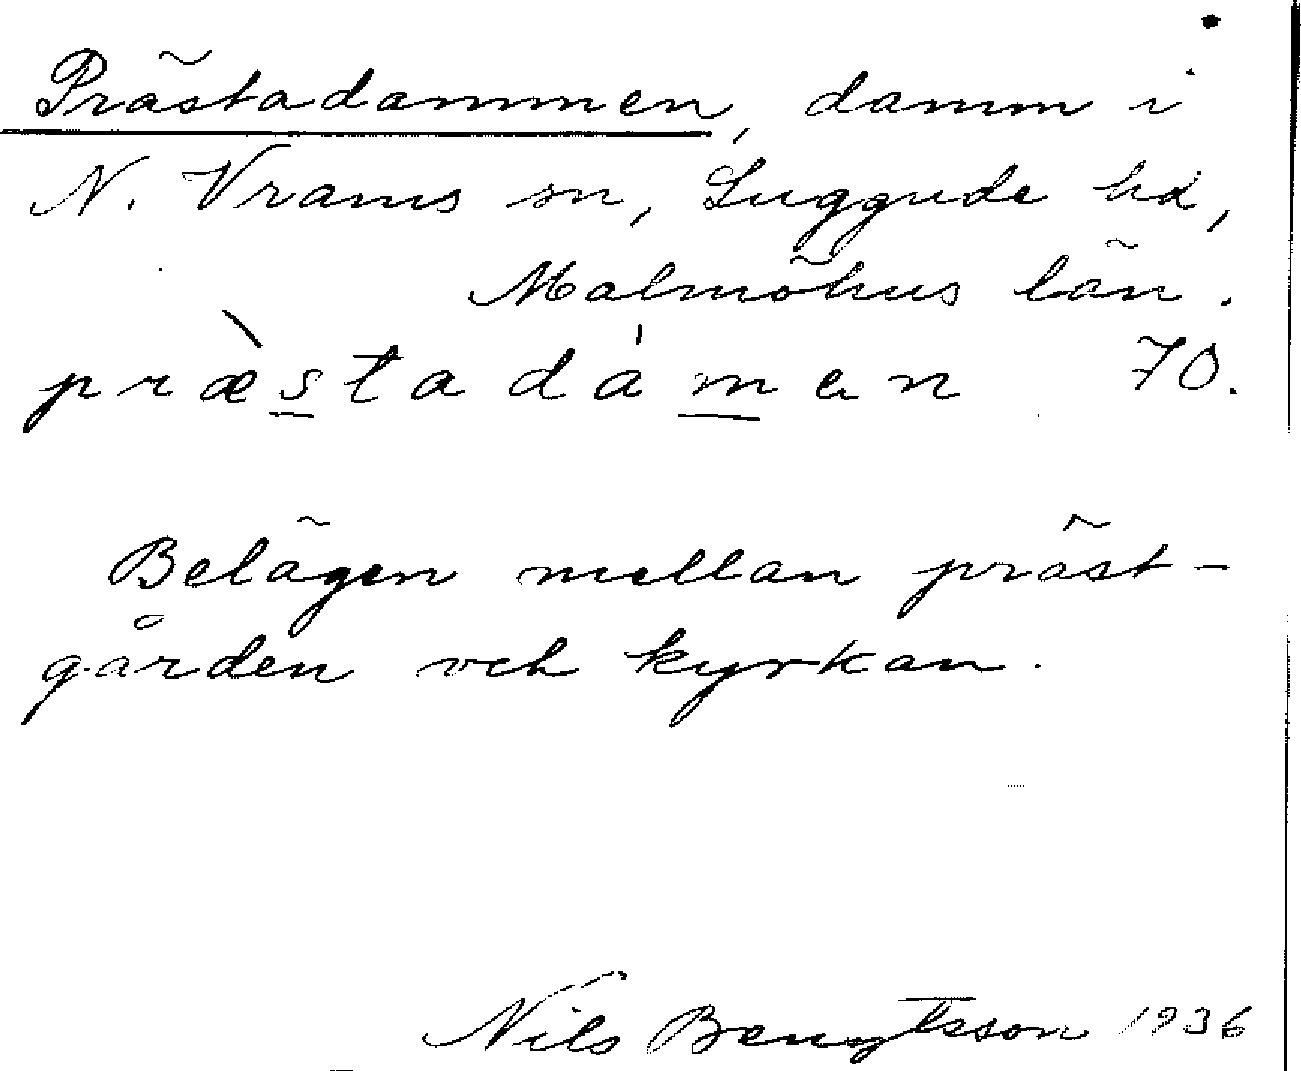 Prästadammen, damm i
N. Vrams sn, Luggude hd,
Malmöhus län.
præ̀stadámen 70.
Belägen mellan präst-
gården och kyrkan.
Nils Bengtsson 1936